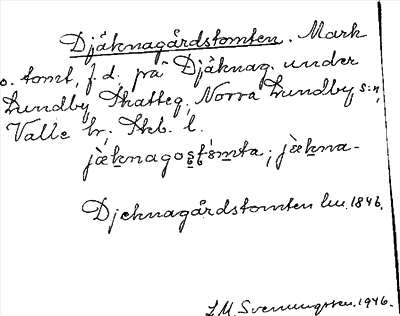 Djäknagårdstomten. Mark
o. tomt, f.d. på Djäknag. under
Lundby Skatteg., Norra Lundby s:n,
Valle hr, Skb. l.
jä̀knagos̭t̀ǻmta; jä̀kna-
Djeknagårdstomten lm. 1846.
L.M. Svenungsson. 1946.